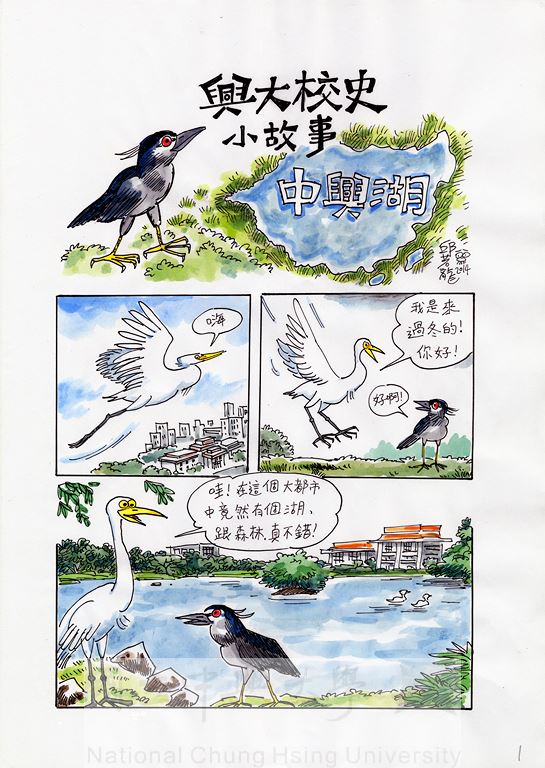 興大校史
小故事
中興湖
邱若龍
2014
嗨
我是來
過冬的!
你好!
好啊!
哇!在這個大都市
中竟然有個湖、
跟森林,真不錯!
中興大學
National Chung Hsing University
1